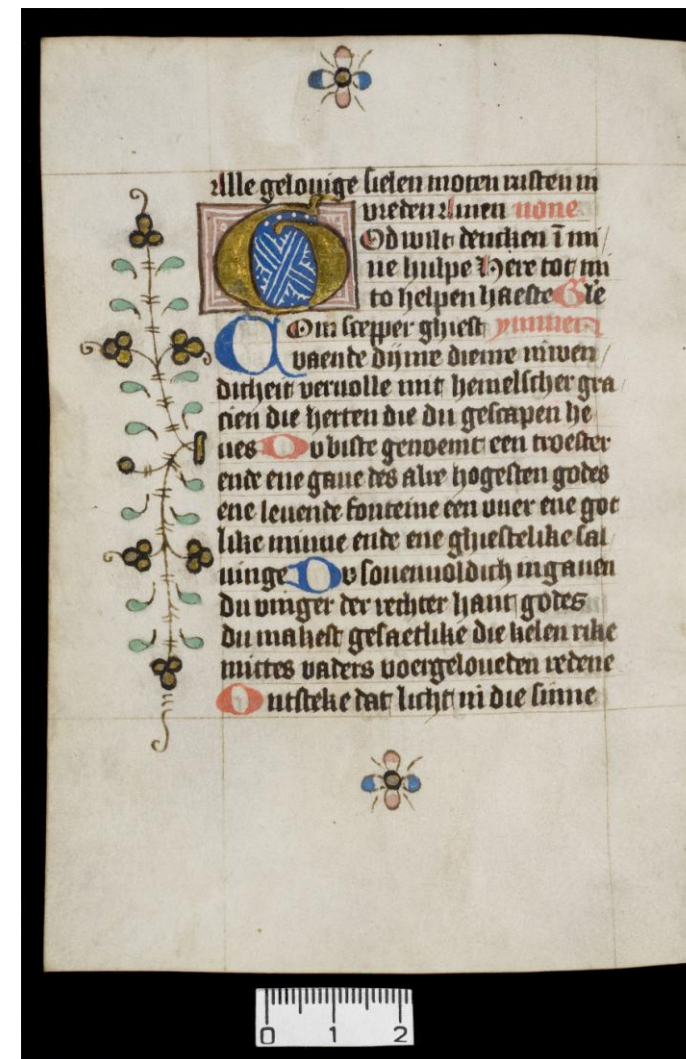 Alle gelouige sielen moten rusten in
vreden Amen none
God wilt dencken ī mi
ne hulpe Here tot mi
to helpen haeste Gle
Com scepper ghiest ymmen
vaende dijnre dienre inwen
dicheit veruolle mit hemelscher gra
cien die herten die du gescapen he
ues Du biste genoemt een troester
ende ene gaue des alre hogesten godes
ene leuende fonteine een vuer ene got
like minne ende ene ghiestelike sal
uinge Du souenuoldich in gauen
du vinger der rechter hant godes
du makest gesaetlike die kelen rike
mittes vaders voergeloueden redene
Ontsteke dat licht in die sinne
0 1 2